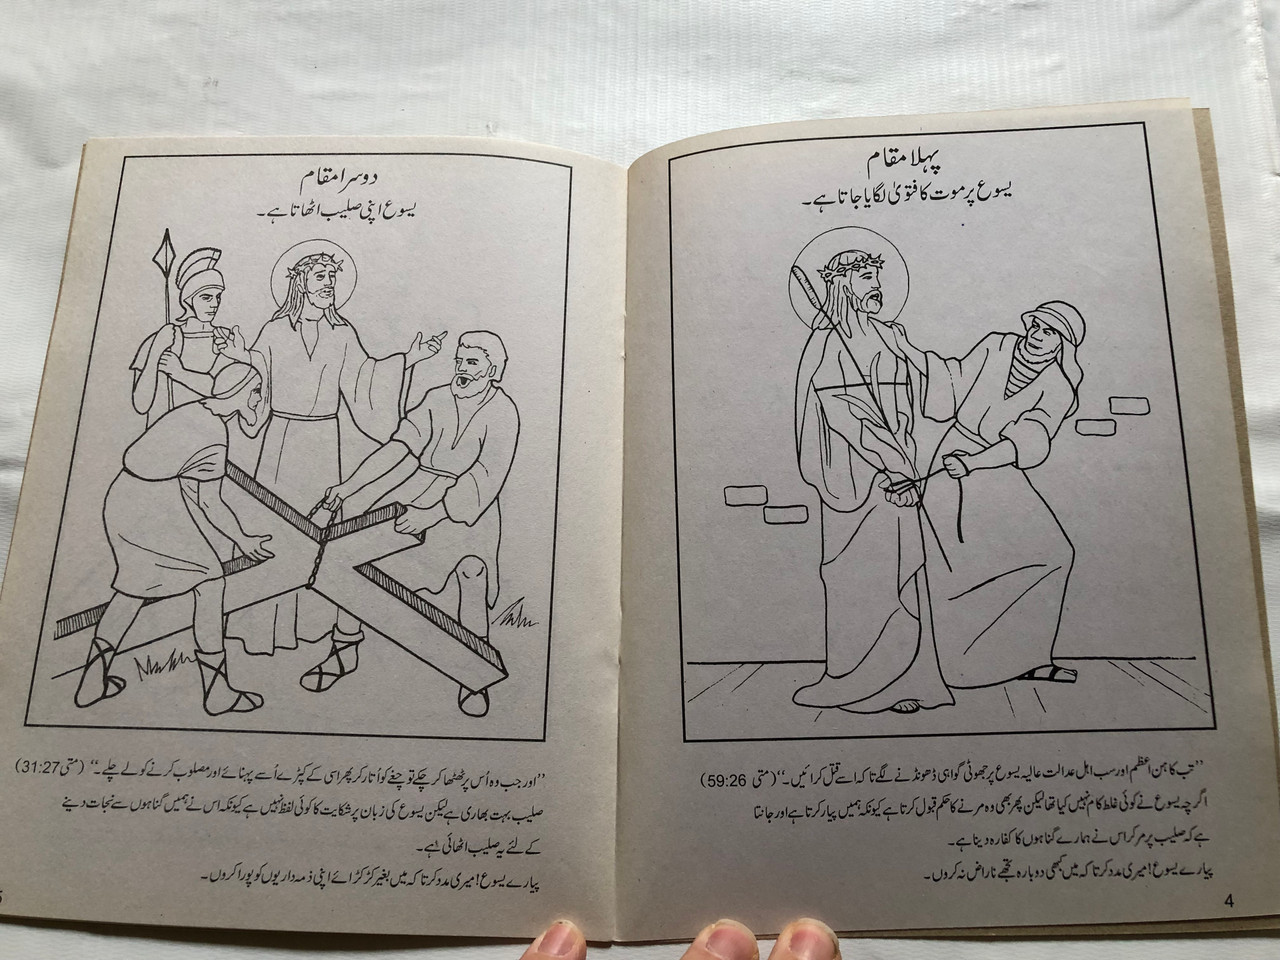 پہلا مقام
یسوع پر موت کا فتویٰ لگایا جاتا ہے۔
”تب کاہن اعظم اور سب اہل عدالت عالیہ یسوع پر جھوٹی گواہی ڈھونڈنے لگے تاکہ اسے قتل کرائیں۔“ (متی 59:26)
اگرچہ یسوع نے کوئی غلط کام نہیں کیا تھا لیکن پھر بھی وہ مرنے کا حکم قبول کرتا ہے کیونکہ ہمیں پیار کرتا ہے اور جانتا
ہے کہ صلیب پر مر کر اس نے ہمارے گناہوں کا کفارہ دینا ہے۔
پیارے یسوع! میری مدد کر تاکہ میں کبھی دوبارہ تجھے ناراض نہ کروں۔
4
دوسرا مقام
یسوع اپنی صلیب اٹھاتا ہے۔
”اور جب وہ اُس پر ٹھٹھا کر چکے تو چغے کو اُتار کر پھر اسی کے کپڑے اُسے پہنائے اور مصلوب کرنے کو لے چلے۔“ (متی 31:27)
صلیب بہت بھاری ہے لیکن یسوع کی زبان پر شکایت کا کوئی لفظ نہیں ہے کیونکہ اس نے ہمیں گناہوں سے نجات دینے
کے لئے یہ صلیب اٹھائی ہے۔
پیارے یسوع! میری مدد کر تاکہ میں بغیر کڑکڑائے اپنی ذمہ داریوں کو پورا کروں۔